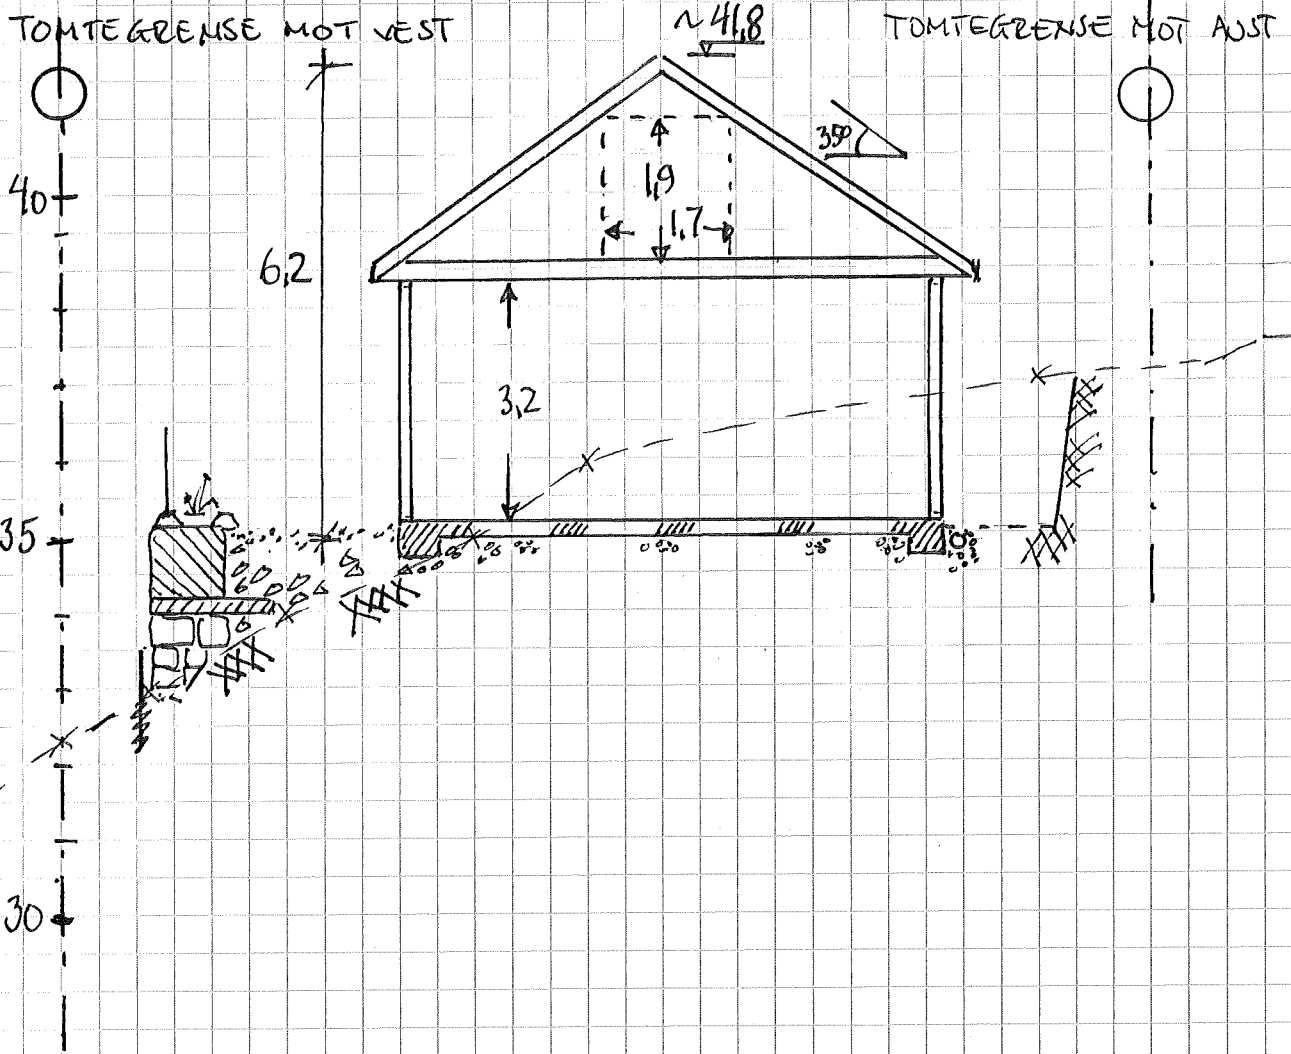 TOMTEGRENSE MOT VEST
~41,8
TOMTEGRENSE MOT AUST
35°
40
1,9
1,7
6,2
3,2
35
30